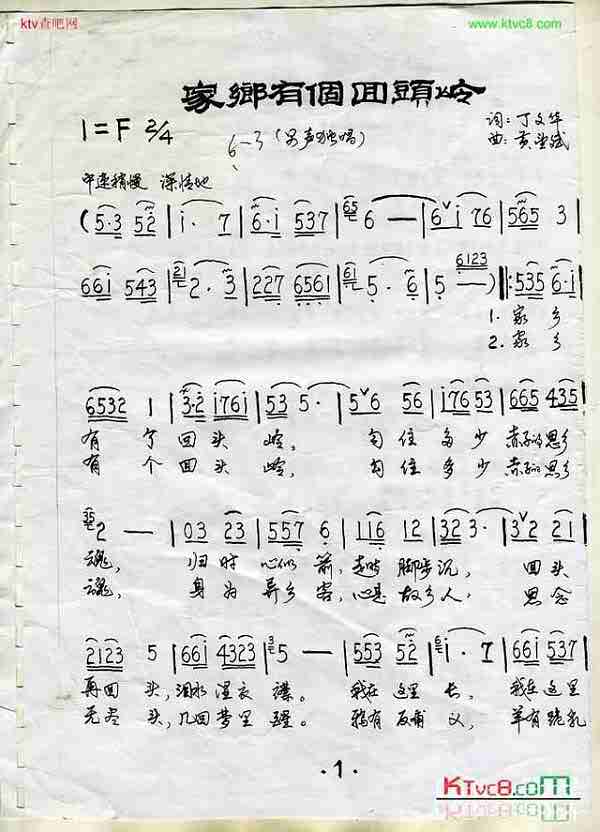 ktv查吧网
www.ktvc8.com
家鄉有個回頭岭
1=F 2/4
6-3 (男声独唱)
词: 丁文华
曲:
中速稍慢 深情地
(5·3 52 | i· 7 | 6·i 537 | 65 6 — | 6 i 76 | 565 3 |
66i 543 | 21 2· 3 | 227 6561 | 61 5· 6 | 5 — 6123 ) ‖: 535 6·i |
1. 家 乡
2. 家 乡
6532 1 | 3·2 i76i | 53 5· | 5 6 56 | i76 53 | 665 435 |
有 个 回 头 岭, 勾 住 多 少 赤子的 思乡
有 个 回 头 岭, 勾 住 多 少 赤子的 思乡
35 2 — | 03 23 | 557 6 | 116 12 | 323 3· | 3 2 21 |
魂, 归 时 心似 箭, 脚步 沉, 回 头
魂, 身 为 异乡 客, 心是 故乡 人, 思 念
2123 5 | 66i 4323 | 3 5 — | 553 52 | 6 i· 7 | 66i 537 |
再回 头, 泪水 湿衣 襟。 我在 这里 长, 我在 这里
无尽 头, 几回 梦里 醒。 鸦有 反哺 义, 羊有 跪乳
·1·
KTvc8.com